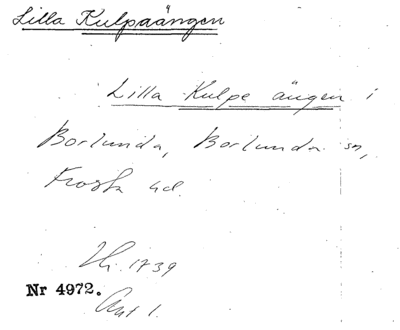 Lilla Kulpaängen
Lilla Kulpe ängen i
Borlunda, Borlunda sn,
Frosta hd.
1739
Nr 4972.
Akt 1.